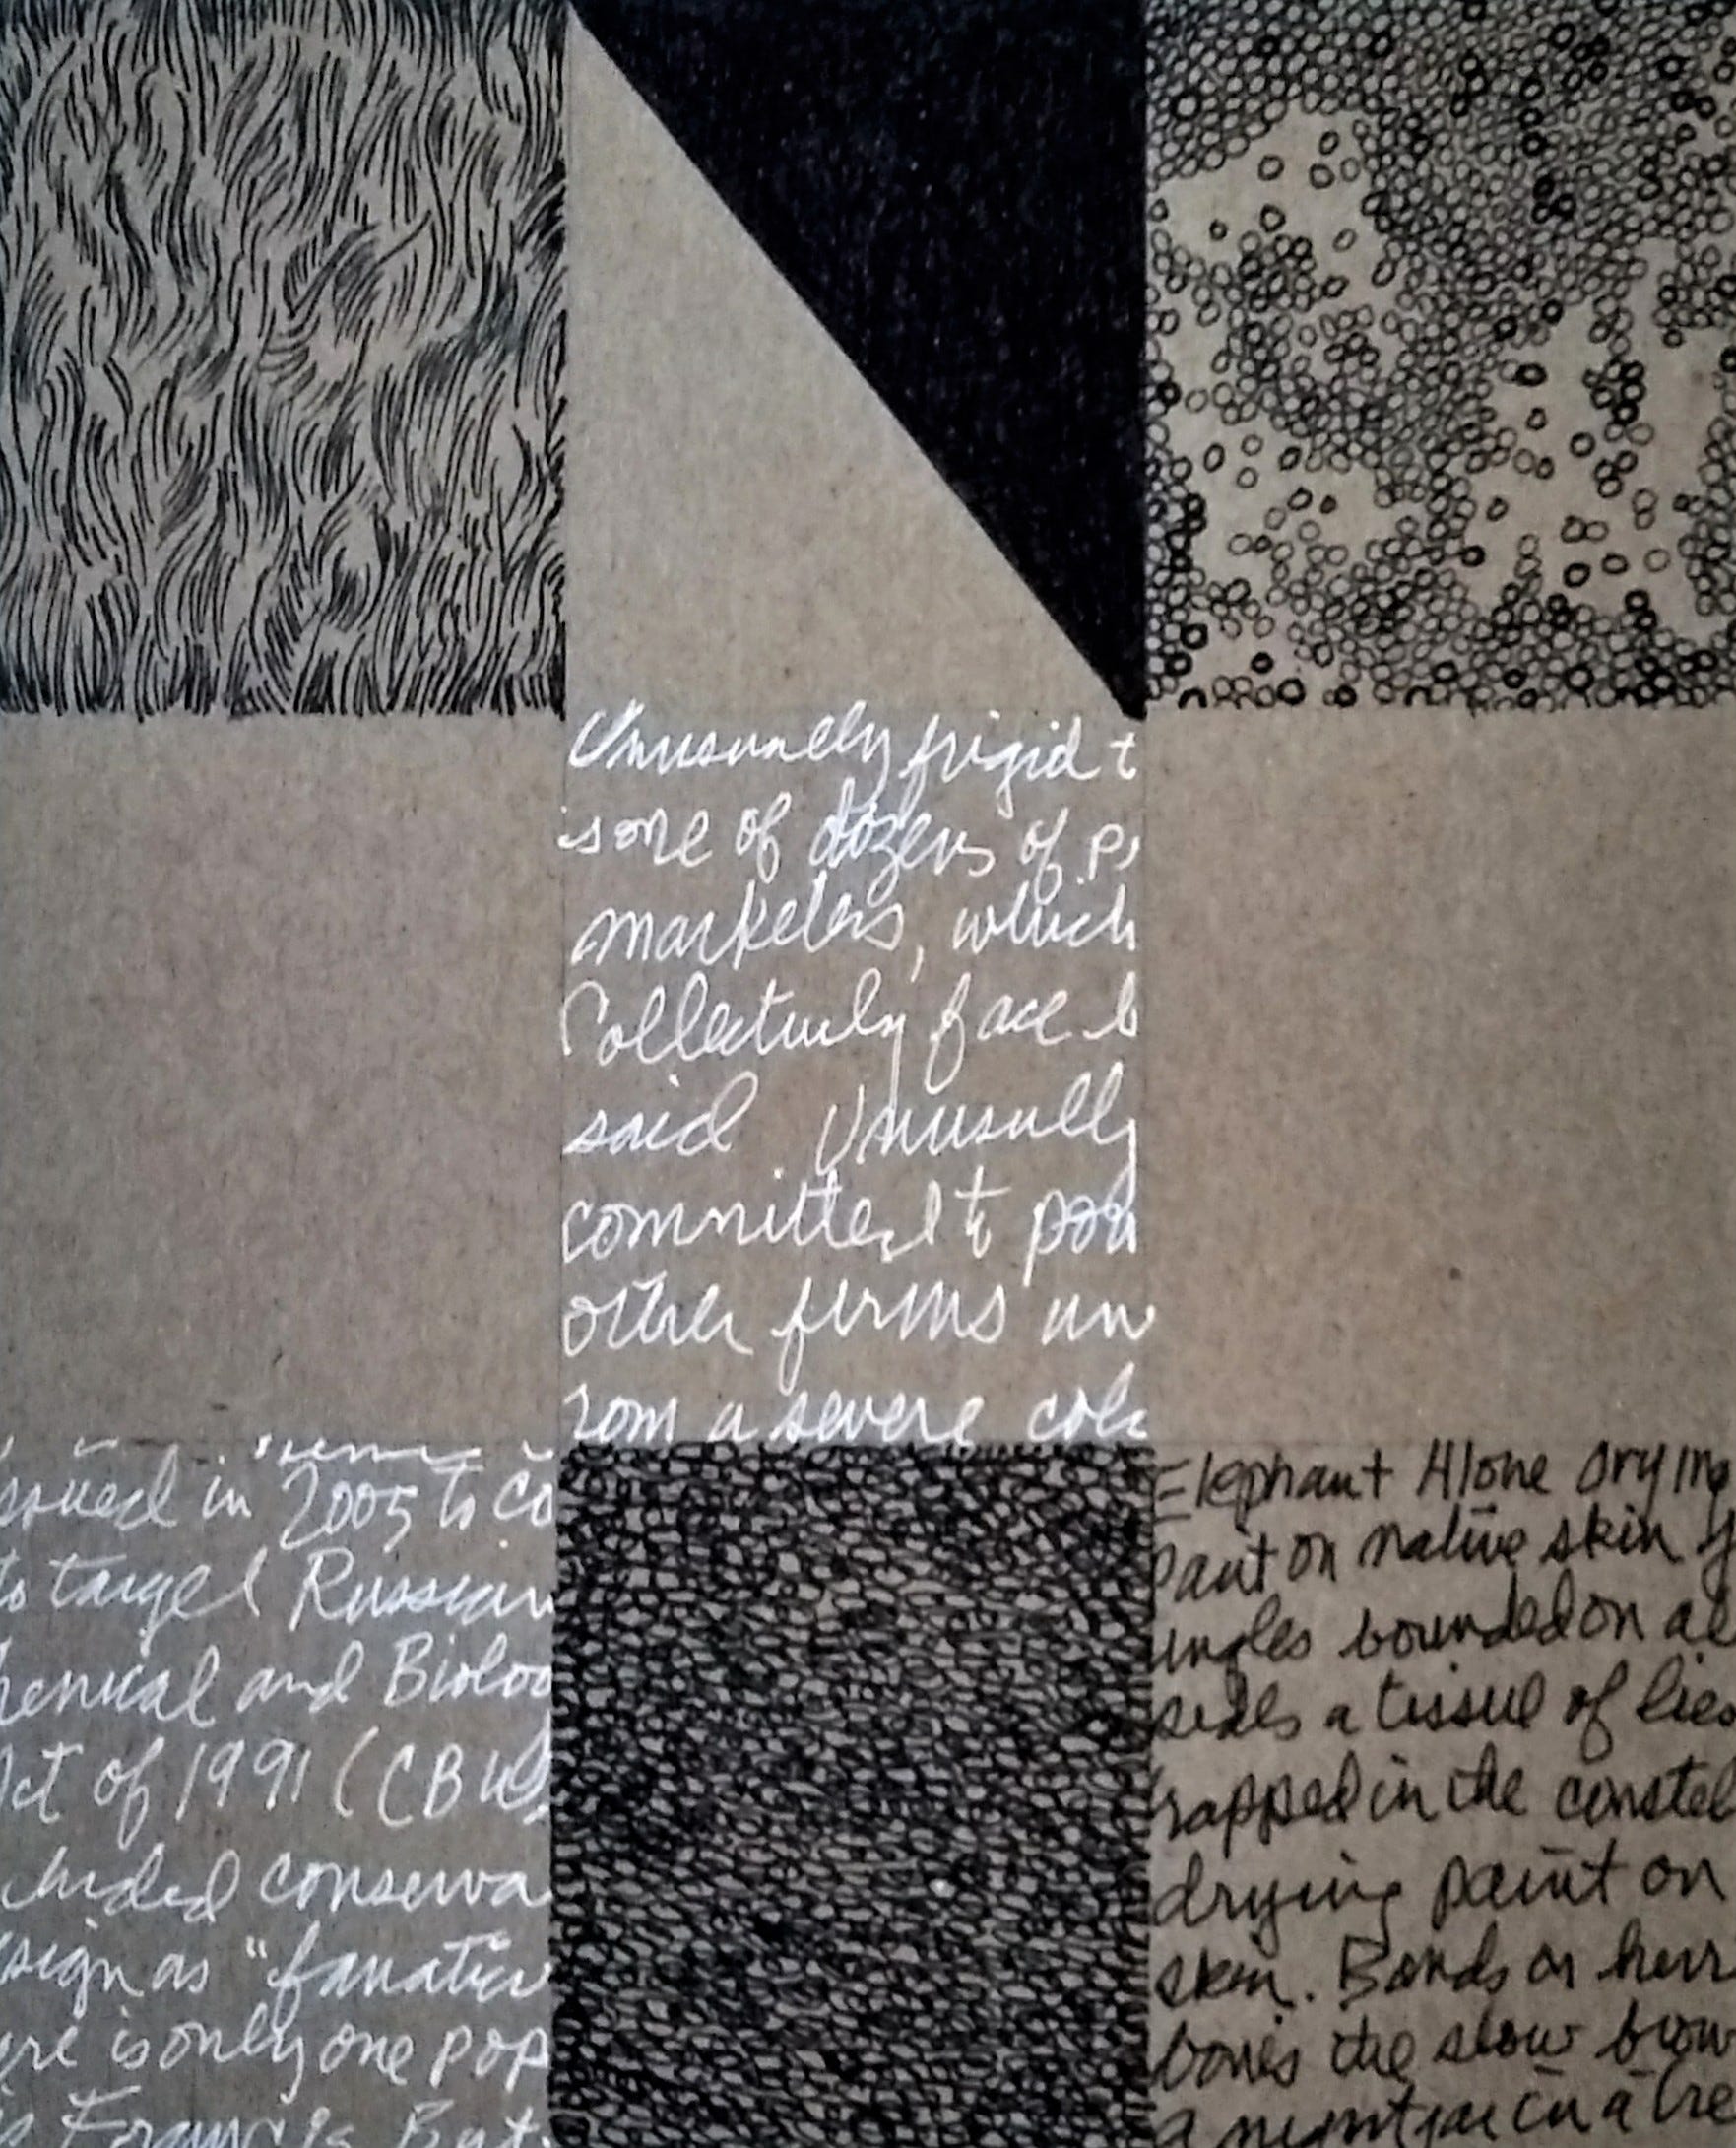 Unusually frigid t
is one of dozens of p
marketers, which
Collectively face b
said Unusually
committed to pow
other firms un
rom a severe col
ssued in 2005 to co
to target Russian
hemical and Biolog
Act of 1991 (CBW
chided conserva
sign as "fanatic
ere is only one pop
is Francis
Elephant Alone drying
Paint on native skin
ungles bounded on al
sides a tissue of lies
rapped in the constel
drying paint on
skin. Bands on her
bones the slow brow
a nightjar in a tre